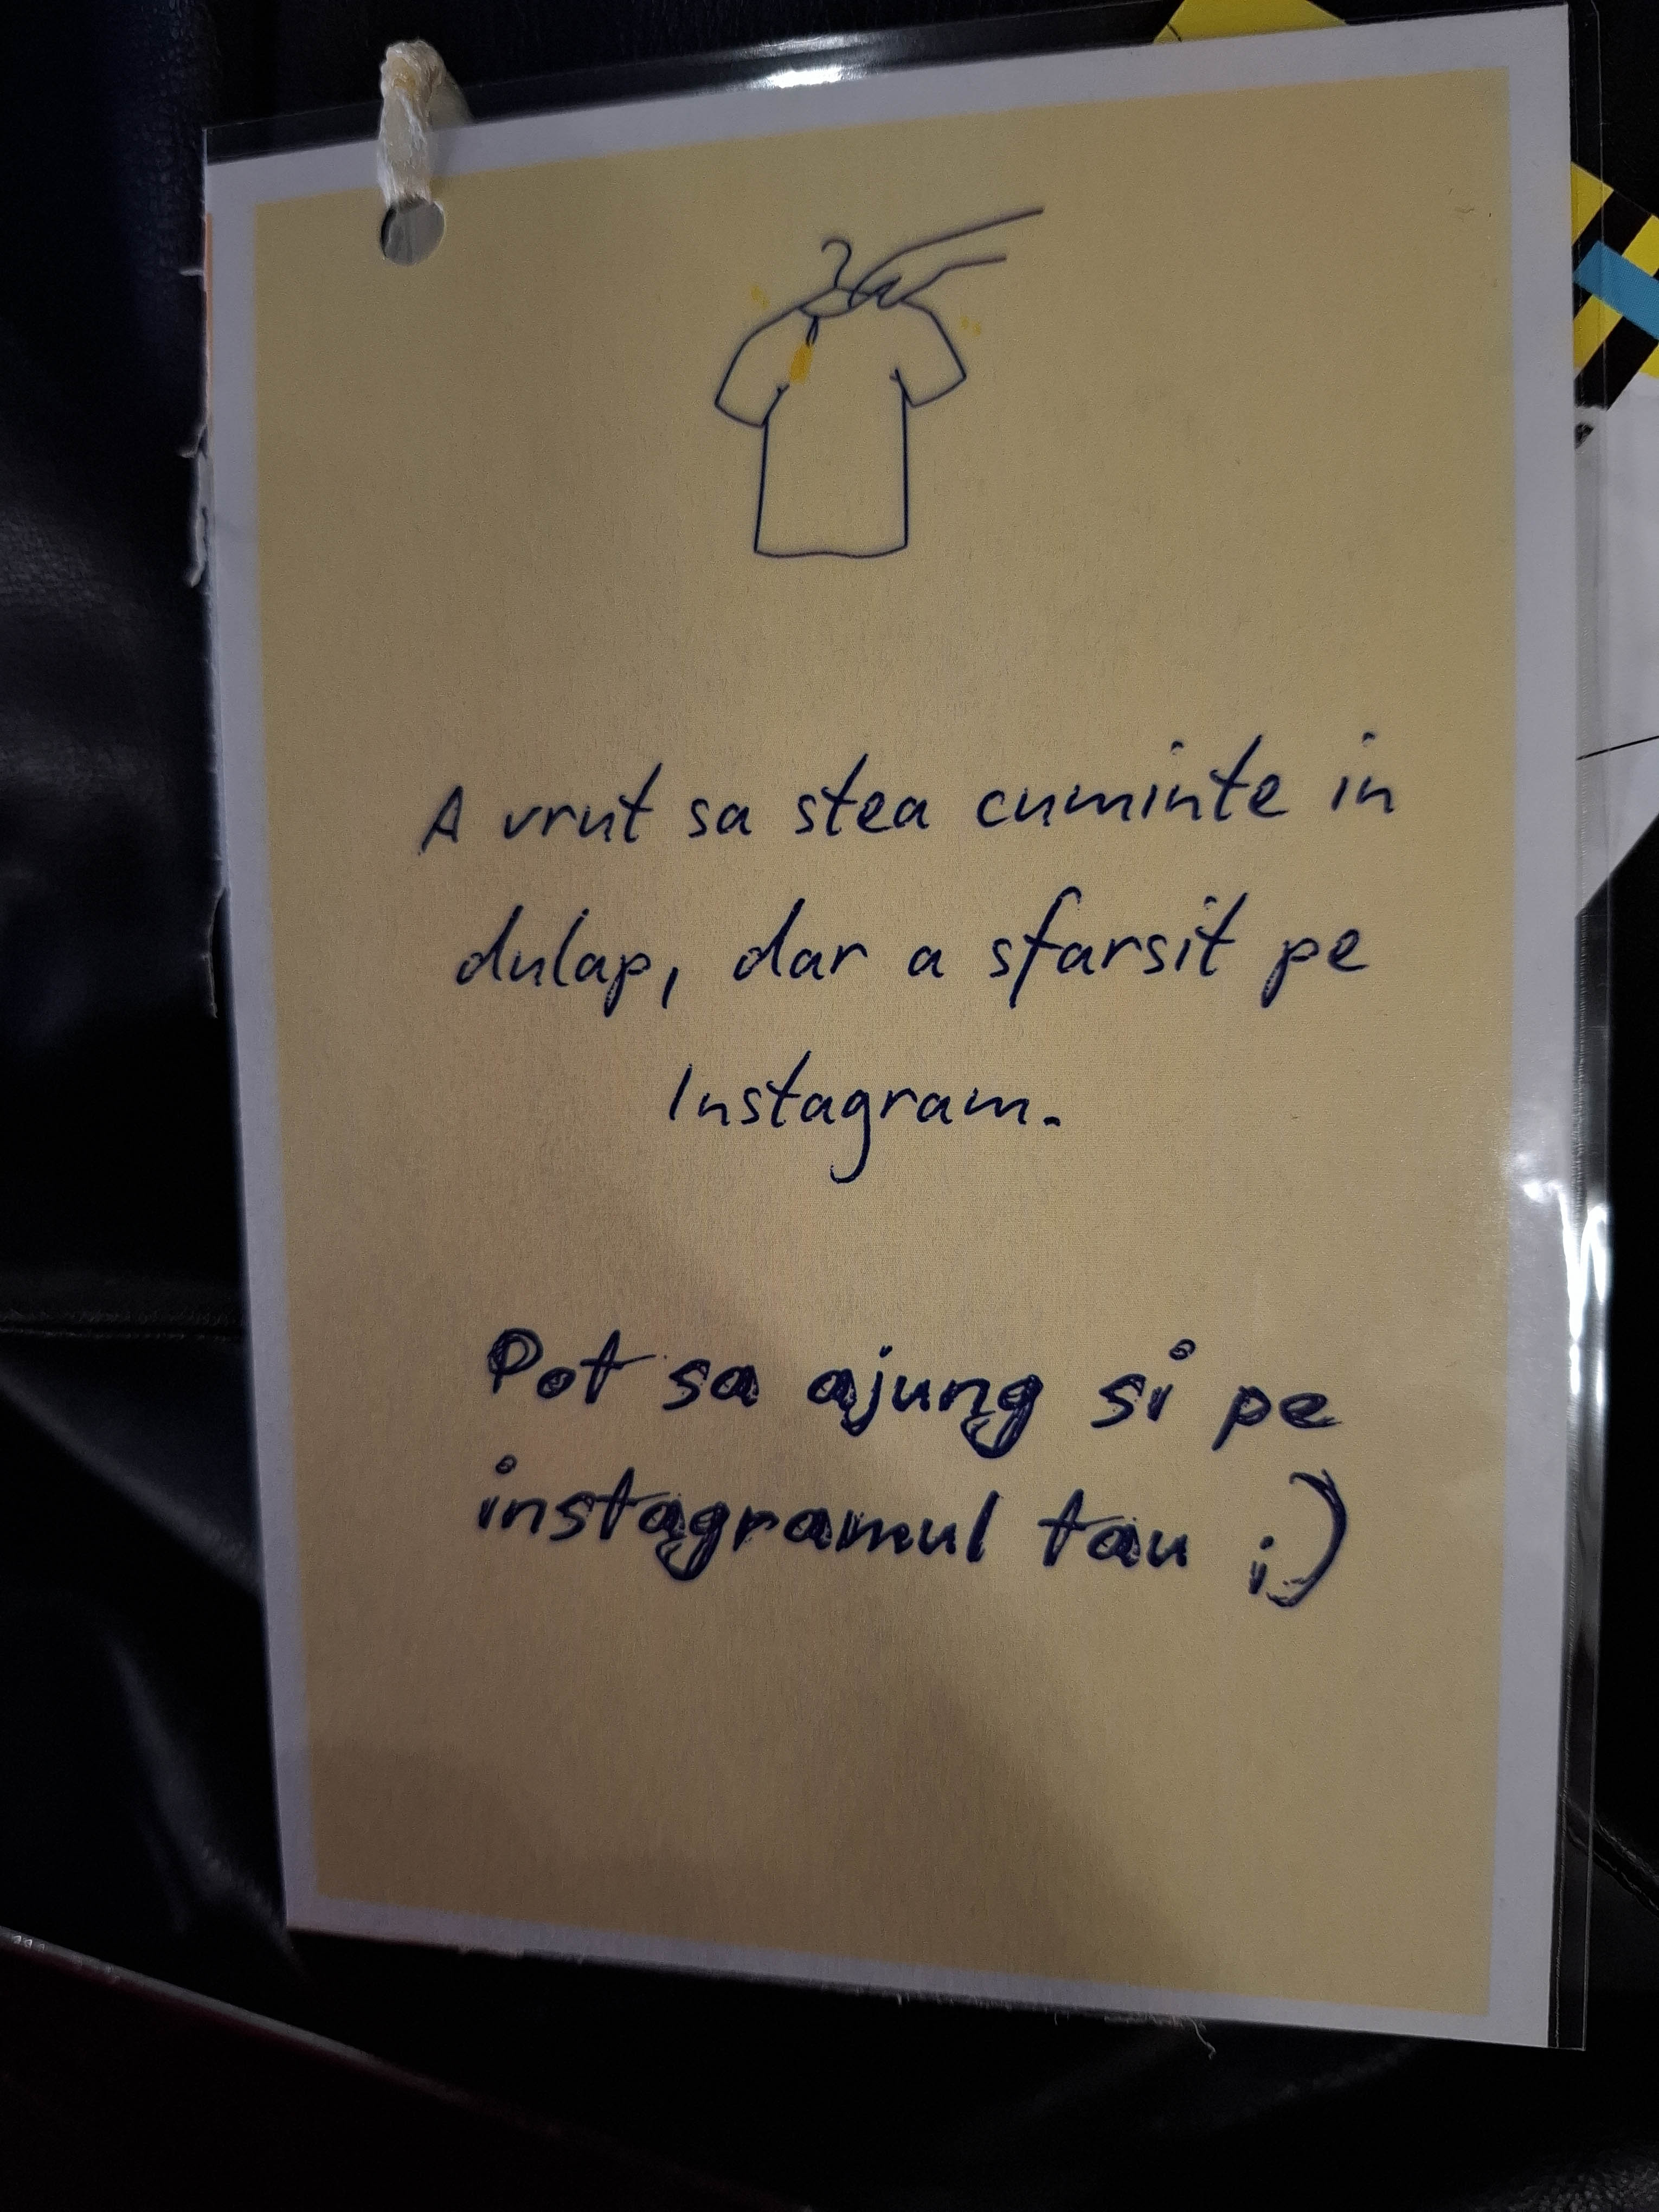 A vrut sa stea cuminte in
dulap, dar a sfarsit pe
Instagram.
Pot sa ajung si pe
instagramul tau ;)